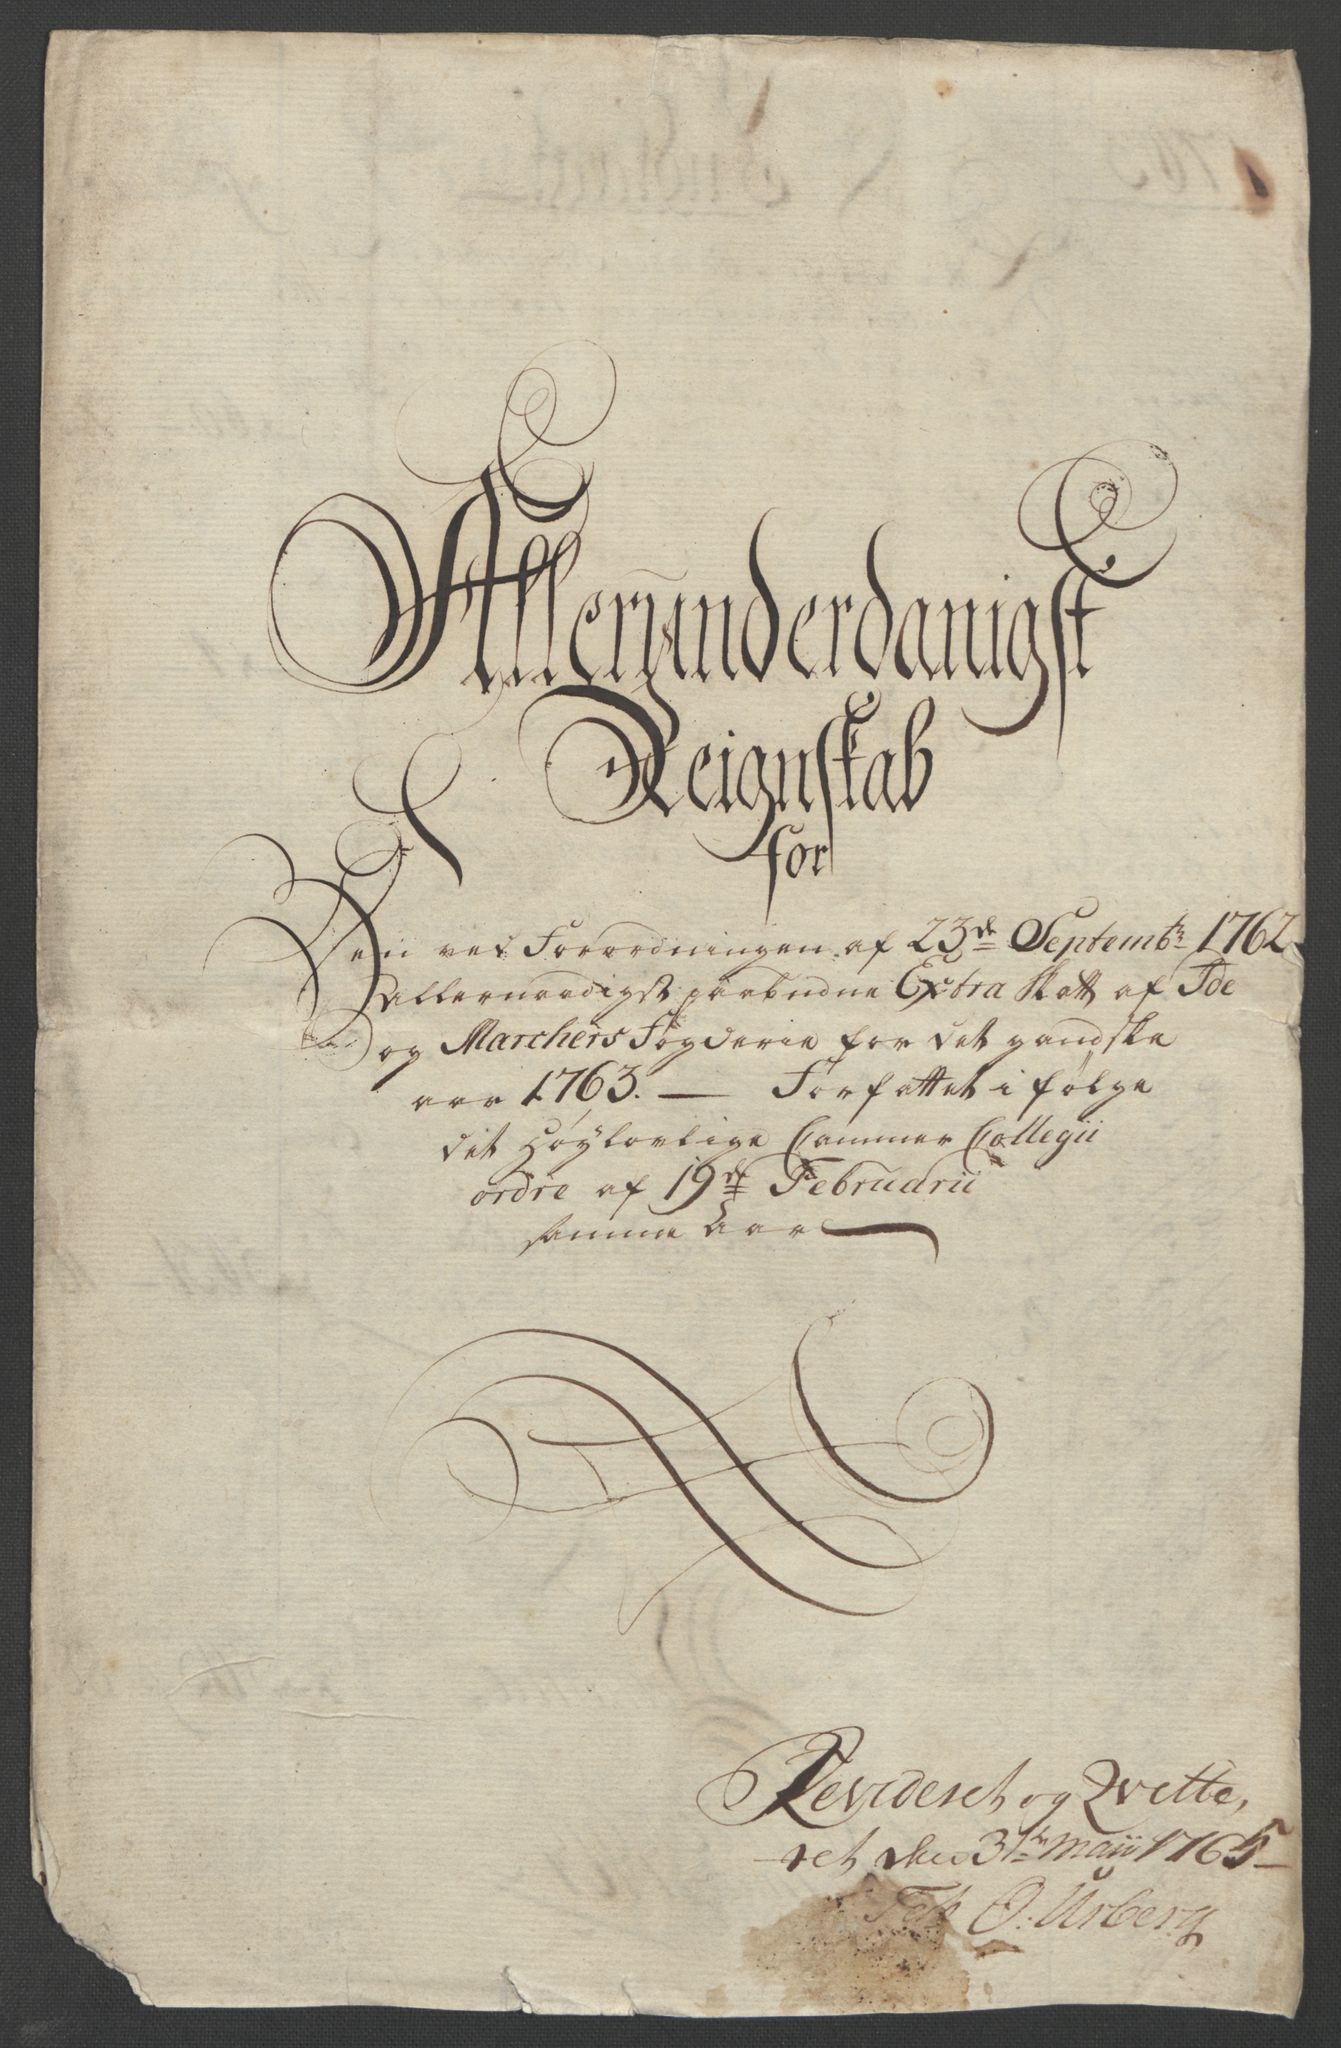 Allerunderdanigst
Reignskab
for
Den ved Forordningen af 23de Septembr 1762
allernaadigst paabudne Extra Skatt af Ide
og Marchers Fogderie for det gandske
aar 1763. — Forfattet i følge
det Høylovlige Cammer Collegii
ordre af 19de Februarii
samme Aar
Revideret og Qvitte,
ret den 31te Maii 1765
O: Urberg